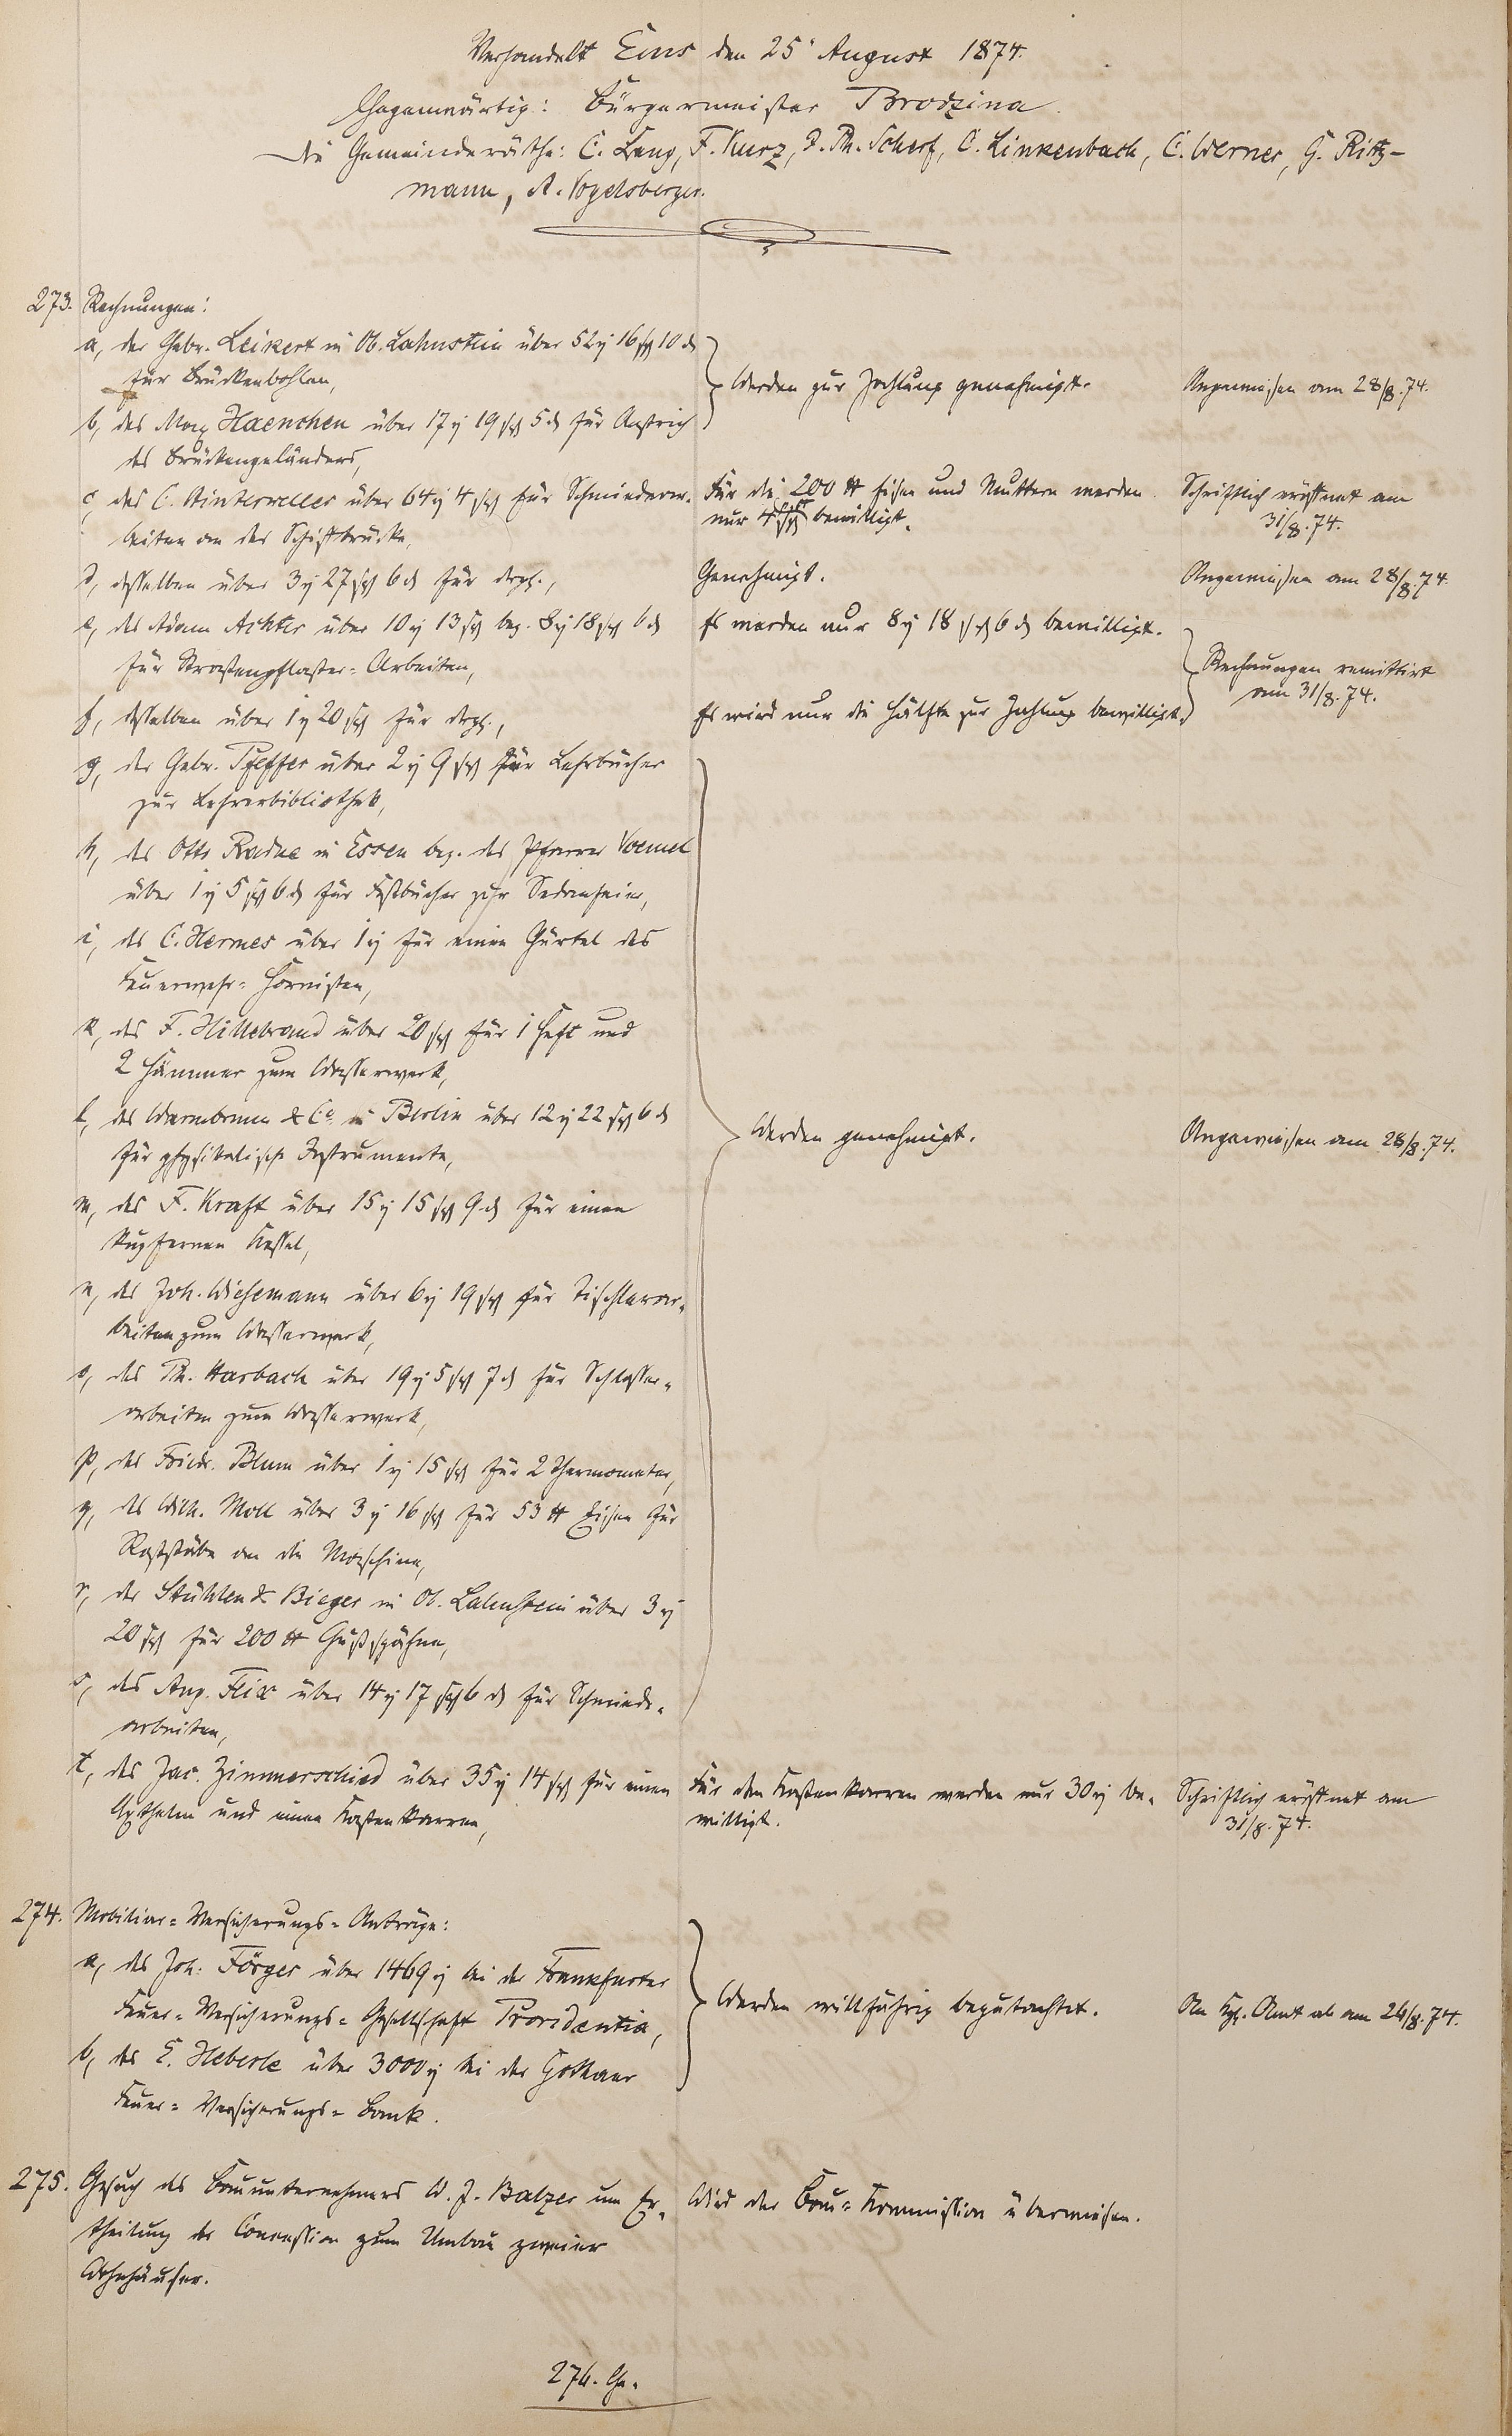 Verhandelt Ems den 25. August 1874.
Gegenwärtig: Bürgermeister Brodzina.
Die Gemeinderäthe: C. Lang, F. Kurz, D. Ph. Scherf, C. Linkenbach, C. Werner, G. Ritz-
mann, A. Vogelsberger.
273. Rechnungen:
a, der Gebr. Leikert in Ob. Lahnstein über 52 rl 16 sgr 10 d
für Brückenbohlen,
Werden zur Zahlung genehmigt.
Angewiesen am 28/8. 74.
b, des Max Haenchen über 17 rl 19 sgr 5 d für Anstrich
des Brückengeländers,
c, des C. Hinterweller über 64 rl 4 sgr für Schmiedear-
beiten an der Schiffbrücke,
Für die 200 ℔ Eisen und Muttern werden
nur 4 sgr bewilligt.
Schriftlich eröffnet am
31/8. 74.
d, desselben über 3 rl 27 sgr 6 d für dergl.,
Genehmigt.
Angewiesen am 28/8. 74.
e, des Adam Achter über 10 rl 13 sgr bez. 8 rl 18 sgr 6 d
für Straßenpflaster-Arbeiten,
Es werden nur 8 rl 18 sgr 6 d bewilligt.
Rechnungen remittirt
am 31/8. 74.
f, desselben über 1 rl 20 sgr für dergl.,
Es wird nur die Hälfte zur Zahlung bewilligt.
g, der Gebr. Pfeffer über 2 rl 9 sgr für Lehrbücher
zur Lehrerbibliothek,
h, des Otto Radke in Essen bez. des Pfarrer Voemel
über 1 rl 5 sgr 6 d für Festbücher zur Sedanfeier,
i, des C. Hermes über 1 rl für einen Gürtel des
Feuerwehr-Hornisten,
k, des F. Hillebrand über 20 sgr für 1 Heft und
2 Hämmer zum Wasserwerk,
l, des Warmbrunn & Co. in Berlin über 12 rl 22 sgr 6 d
für physikalische Instrumente,
Werden genehmigt.
Angewiesen am 28/8. 74.
m, des F. Kraft über 15 rl 15 sgr 9 d für einen
kupfernen Kessel,
n, des Joh. Wiesemann über 6 rl 19 sgr für Tischlerar-
beiten zum Wasserwerk,
o, des Ph. Harbach über 19 rl 5 sgr 7 d für Schlosser-
arbeiten zum Wasserwerk,
p, des Friedr. Blum über 1 rl 15 sgr für 2 Thermometer,
q, des Wilh. Moll über 3 rl 16 sgr für 53 ℔ Eisen für
Roststäbe an die Maschine,
r, der Stühlen & Bieger in Ob. Lahnstein über 3 rl
20 sgr für 200 ℔ Gußspähne,
s, des Aug. Flix über 14 rl 17 sgr 6 d für Schmiede-
arbeiten,
t, des Jac. Zimmerschied über 35 rl 14 sgr für einen
Axthelm und einen Kastenkarren,
Für den Kastenkarren werden nur 30 rl be-
willigt.
Schriftlich eröffnet am
31/8. 74.
274. Mobiliar-Versicherungs-Anträge:
a, des Joh. Förger über 1469 rl bei der Frankfurter
Feuer-Versicherungs-Gesellschaft Providentia,
Werden willfährig begutachtet.
An Kgl. Amt ab am 26/8. 74.
b, des E. Heberle über 3000 rl bei der Gothaer
Feuer-Versicherungs-Bank.
275. Gesuch des Bauunternehmers W. J. Balzer um Er-
theilung der Concession zum Umbau zweier
Wohnhäuser.
Wird der Bau-Kommission überwiesen.
276. Ge.